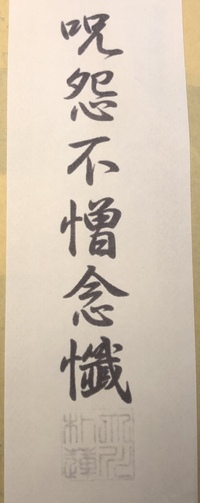 呪怨不憎念懺